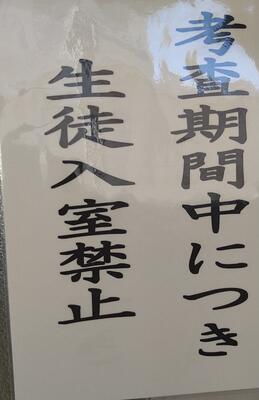 考査期間中につき
生徒入室禁止